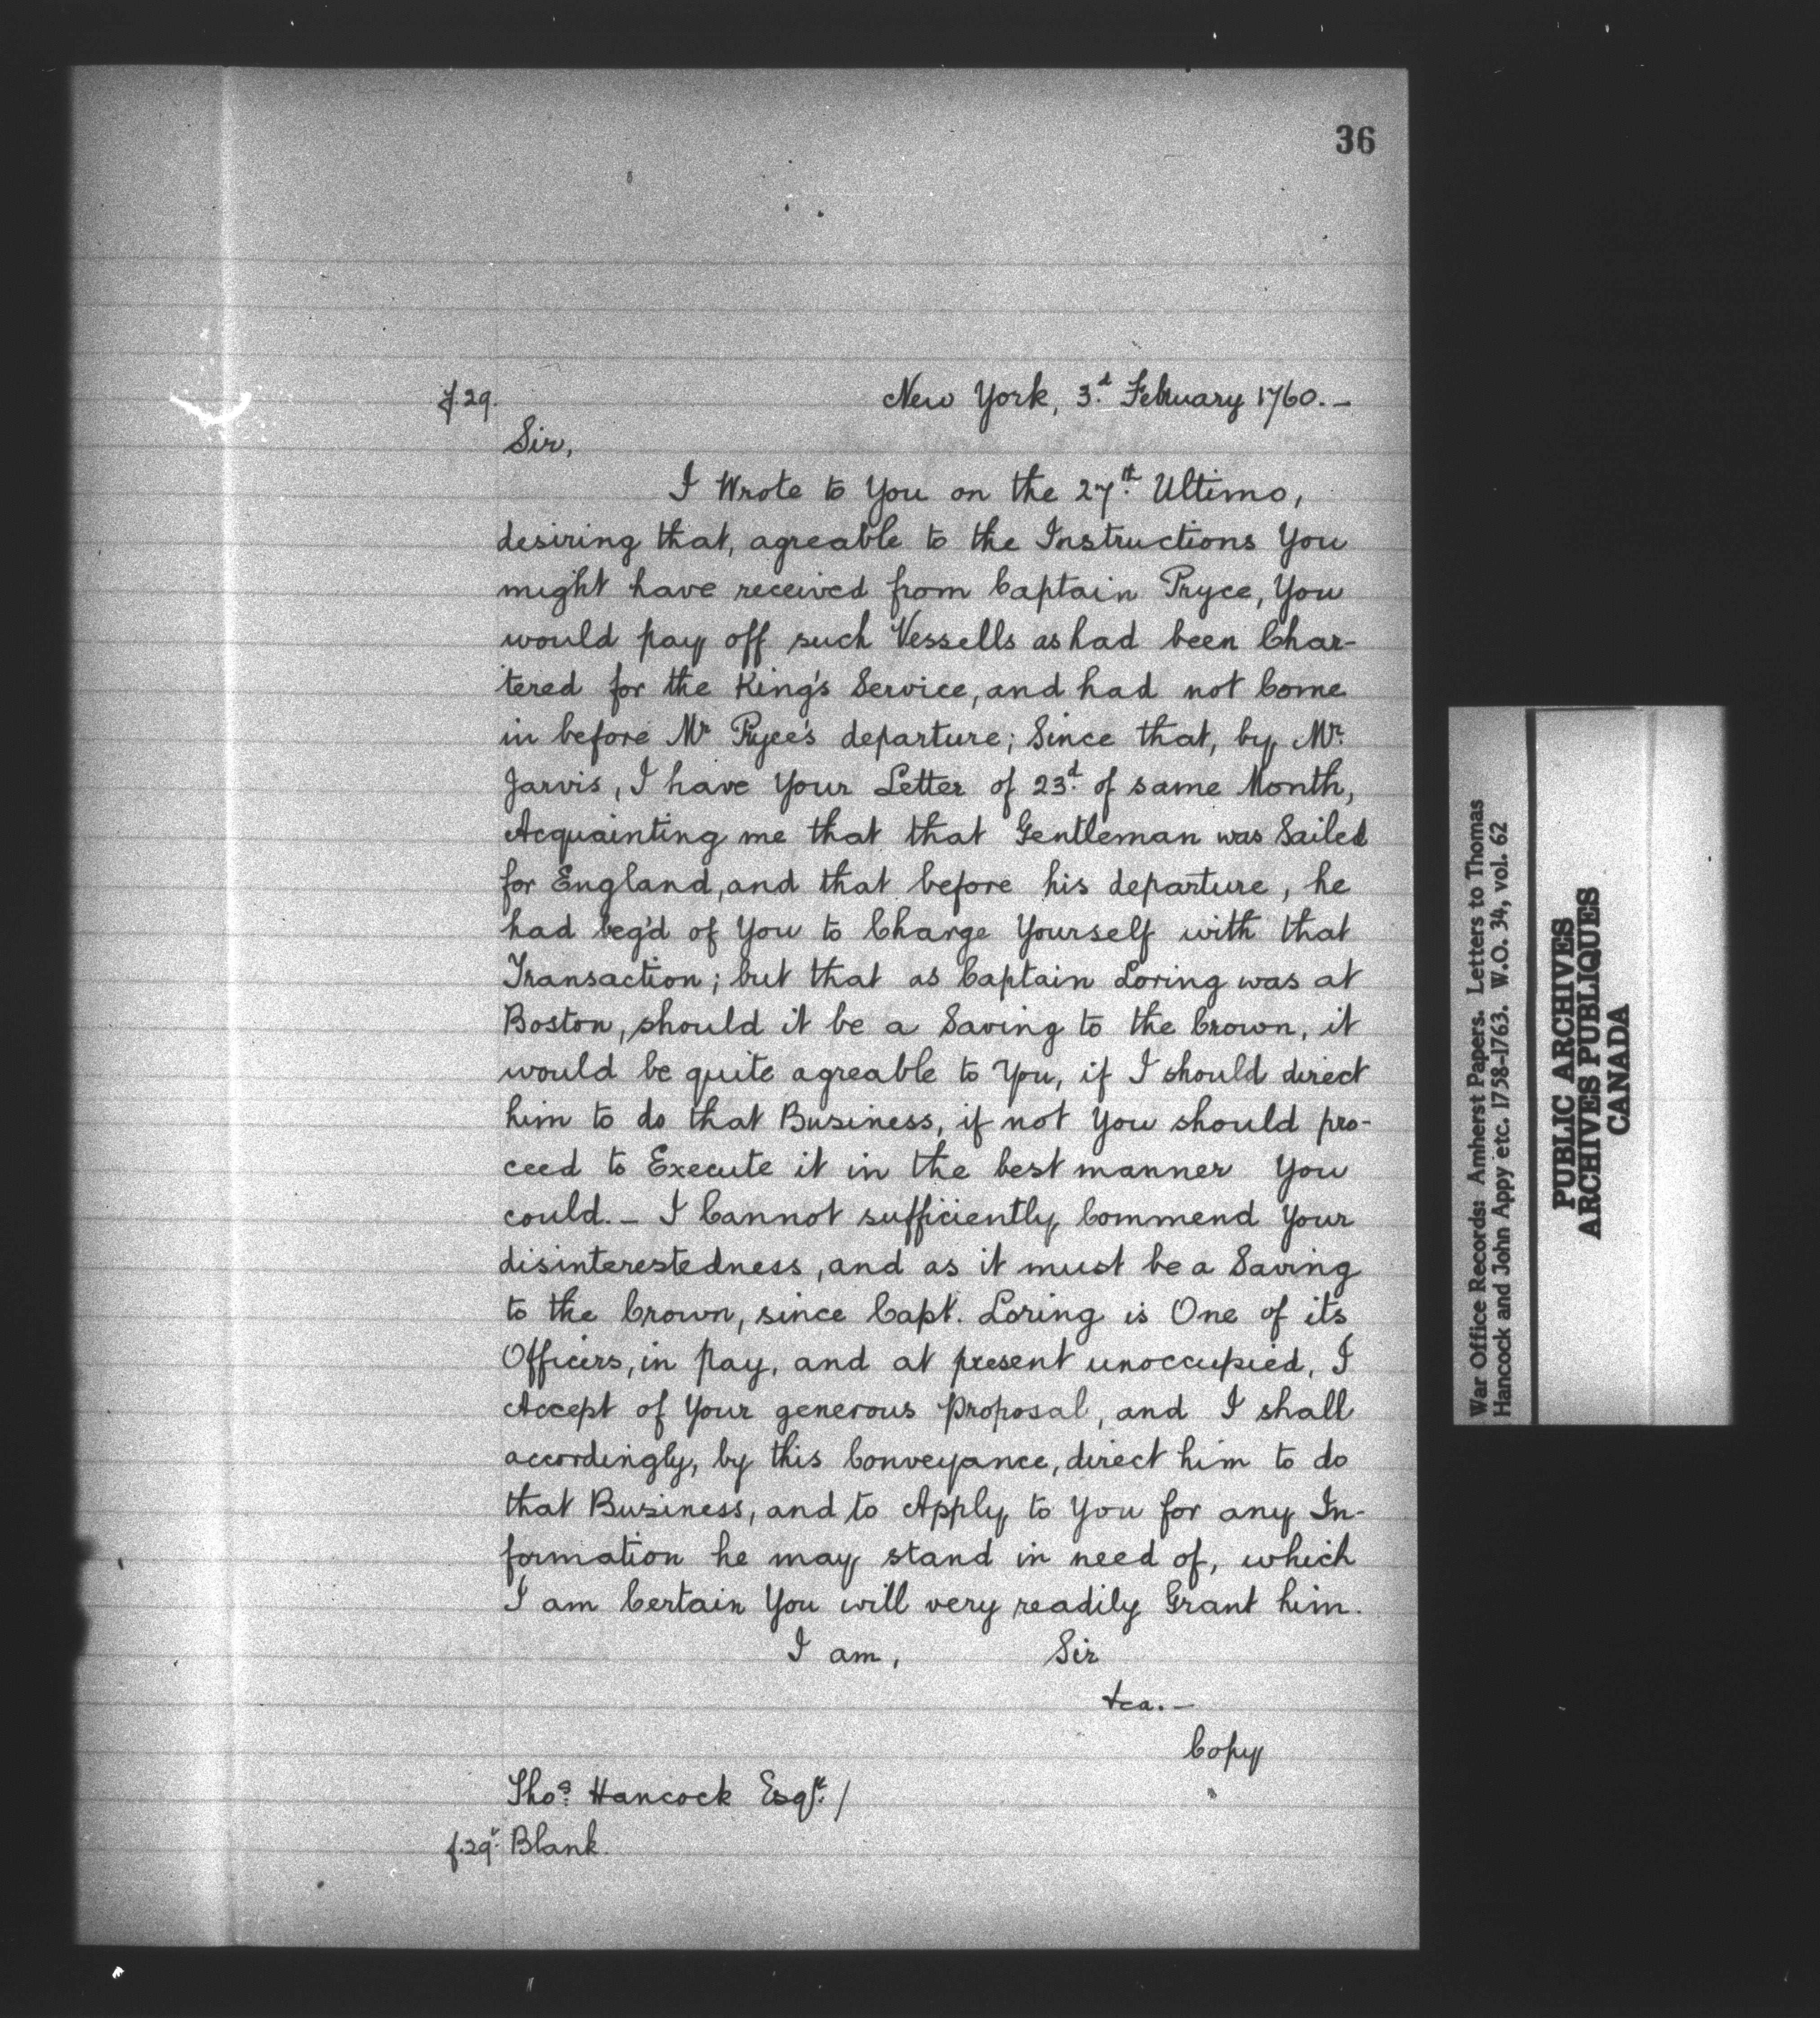 36
f.29.
New York, 3.d February 1760.–
Sir,
I Wrote to You on the 27.th Ultimo,
desiring that, agreable to the Instructions You
might have received from Captain Pryce, You
would pay off such Vessells as had been Char-
tered for the King's Service, and had not Come
in before Mr Pryce's departure; Since that, by Mr.
Jarvis, I have Your Letter of 23.d of same Month,
Acquainting me that that Gentleman was Sailed
for England, and that before his departure, he
had beg'd of You to Charge Yourself with that
Transaction; but that as Captain Loring was at
Boston, should it be a Saving to the Crown, it
would be quite agreable to You, if I should direct
him to do that Business, if not You should pro-
ceed to Execute it in the best manner You
could.– I Cannot sufficiently Commend Your
disinterestedness, and as it must be a Saving
to the Crown, since Capt. Loring is One of its
Officers, in pay, and at present unoccupied, I
Accept of Your generous Proposal, and I shall
accordingly, by this Conveyance, direct him to do
that Business, and to Apply to You for any In-
formation he may stand in need of, which
I am Certain You will very readily Grant him.
I am, Sir
&ca.–
Copy
Thos. Hancock Esqr./
f.29v. Blank.
War Office Records: Amherst Papers. Letters to Thomas
Hancock and John Appy etc. 1758-1763. W.O. 34, vol. 62
PUBLIC ARCHIVES
ARCHIVES PUBLIQUES
CANADA